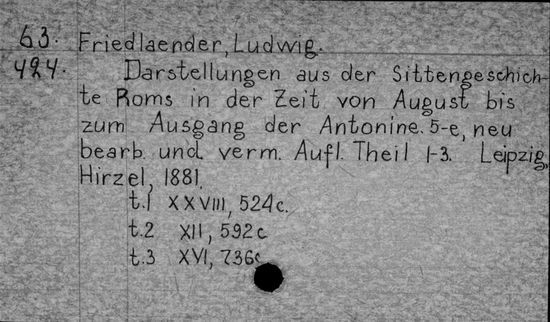 63. Friedlaender, Ludwig.
424. Darstellungen aus der Sittengeschich-
te Roms in der Zeit von August bis
zum Ausgang der Antonine. 5-e, neu
bearb. und verm. Aufl. Theil 1-3. Leipzig,
Hirzel, 1881.
t.1 XXVIII, 524c.
t.2 XII, 592c
t.3 XVI, 736c